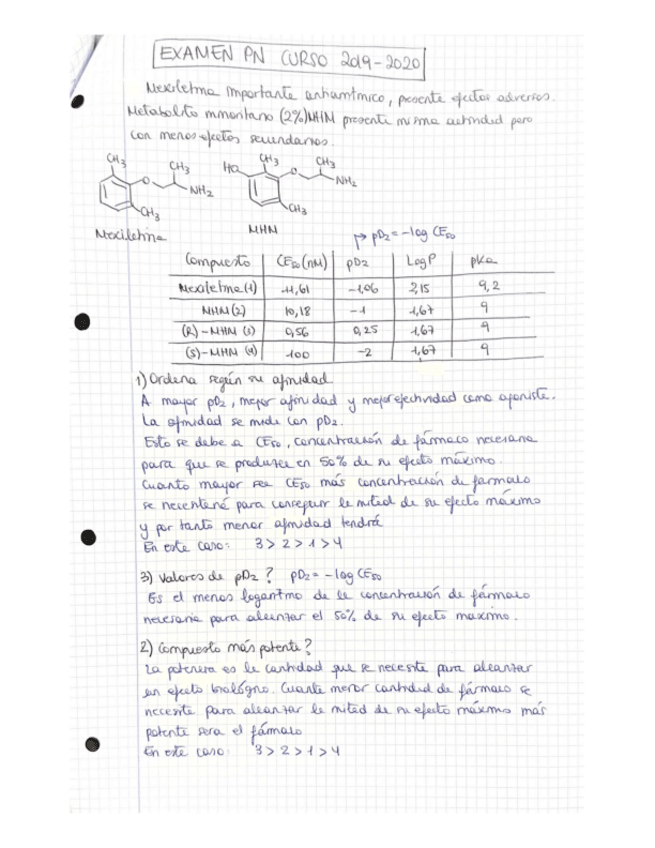 EXAMEN PN CURSO 2019-2020
Mexiletina importante antiarrítmico, presenta efectos adversos.
Metabolito minoritario (2%) MHM presenta misma actividad pero
con menos efectos secundarios.
CH3 CH3 CH3 CH3
HO
O NH2 O NH2
CH3 CH3
Mexiletina MHM
↳ pD2 = -log CE50
Compuesto CE50 (nM) pD2 Log P pKa
Mexiletina (1) 11,61 -1,06 2,15 9,2
MHM (2) 10,18 -1 1,67 9
(R)-MHM (3) 0,56 0,25 1,67 9
(S)-MHM (4) 100 -2 1,67 9
1) Ordena según su afinidad
A mayor pD2, mejor afinidad y mejor efectividad como agonista.
La afinidad se mide con pD2.
Esto se debe a CE50, concentración de fármaco necesaria
para que se produzca en 50% de su efecto máximo.
Cuanto mayor sea CE50 más concentración de fármaco
se necesitará para conseguir la mitad de su efecto máximo
y por tanto menor afinidad tendrá
En este caso: 3 > 2 > 1 > 4
3) Valores de pD2? pD2 = -log CE50
Es el menos logaritmo de la concentración de fármaco
necesaria para alcanzar el 50% de su efecto máximo.
2) Compuesto más potente?
La potencia es la cantidad que se necesita para alcanzar
un efecto biológico. Cuanta menor cantidad de fármaco se
necesite para alcanzar la mitad de su efecto máximo más
potente sera el fármaco
En este caso: 3 > 2 > 1 > 4